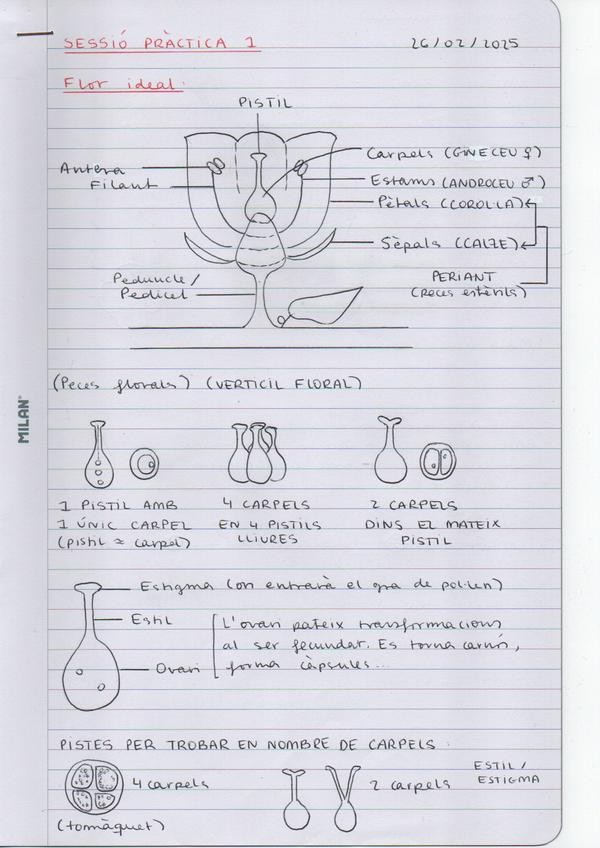 SESSIÓ PRÀCTICA 1 26/02/2025
Flor ideal:
PISTIL
Antera
Filant
Carpels (GINECEU ♀)
Estams (ANDROCEU ♂)
Pètals (COROL·LA)
Sèpals (CALZE)
PERIANT
(Peces estèrils)
Peduncle/
Pedicel
(Peces florals) (VERTICIL FLORAL)
MILAN®
1 PISTIL AMB
1 ÚNIC CARPEL
(pistil ≈ carpel)
4 CARPELS
EN 4 PISTILS
LLIURES
2 CARPELS
DINS EL MATEIX
PISTIL
Estigma (on entrarà el gra de pol·len)
Estil
Ovari
L'ovari pateix transformacions
al ser fecundat. Es torna carnós,
forma càpsules...
PISTES PER TROBAR EN NOMBRE DE CARPELS:
4 carpels
(tomàquet)
2 carpels
ESTIL/
ESTIGMA